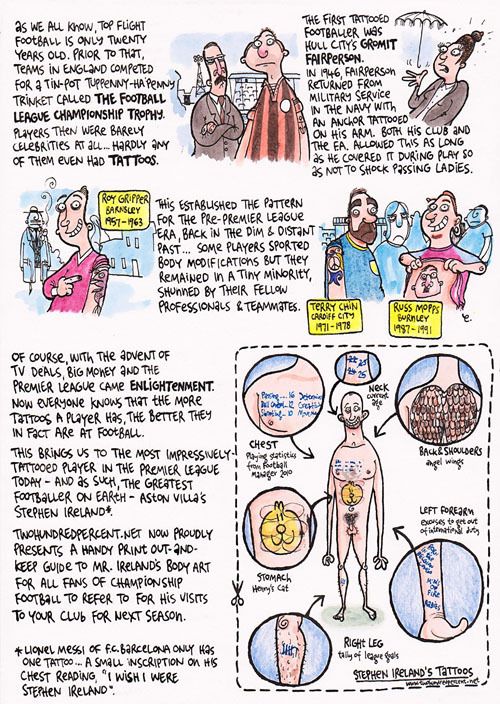 AS WE ALL KNOW, TOP FLIGHT
FOOTBALL IS ONLY TWENTY
YEARS OLD. PRIOR TO THAT,
TEAMS IN ENGLAND COMPETED
FOR A TIN-POT TUPPENNY-HA'PENNY
TRINKET CALLED THE FOOTBALL
LEAGUE CHAMPIONSHIP TROPHY.
PLAYERS THEN WERE BARELY
CELEBRITIES AT ALL... HARDLY ANY
OF THEM EVEN HAD TATTOOS.
THE FIRST TATTOOED
FOOTBALLER WAS
HULL CITY'S GROMIT
FAIRPERSON.
IN 1946, FAIRPERSON
RETURNED FROM
MILITARY SERVICE
IN THE NAVY WITH
AN ANCHOR TATTOOED
ON HIS ARM. BOTH HIS CLUB AND
THE F.A. ALLOWED THIS AS LONG
AS HE COVERED IT DURING PLAY SO
AS NOT TO SHOCK PASSING LADIES.
ROY GRIPPER
BARNSLEY
1957-1963
THIS ESTABLISHED THE PATTERN
FOR THE PRE-PREMIER LEAGUE
ERA, BACK IN THE DIM & DISTANT
PAST... SOME PLAYERS SPORTED
BODY MODIFICATIONS BUT THEY
REMAINED IN A TINY MINORITY,
SHUNNED BY THEIR FELLOW
PROFESSIONALS & TEAMMATES.
TERRY CHIN
CARDIFF CITY
1971-1978
RUSS MOPPS
BURNLEY
1987-1991
OF COURSE, WITH THE ADVENT OF
TV DEALS, BIG MONEY AND THE
PREMIER LEAGUE CAME ENLIGHTENMENT.
NOW EVERYONE KNOWS THAT THE MORE
TATTOOS A PLAYER HAS, THE BETTER THEY
IN FACT ARE AT FOOTBALL.
THIS BRINGS US TO THE MOST IMPRESSIVELY-
TATTOOED PLAYER IN THE PREMIER LEAGUE
TODAY - AND AS SUCH, THE GREATEST
FOOTBALLER ON EARTH - ASTON VILLA'S
STEPHEN IRELAND*.
TWOHUNDREDPERCENT.NET NOW PROUDLY
PRESENTS A HANDY PRINT OUT-AND-
KEEP GUIDE TO MR. IRELAND'S BODY ART
FOR ALL FANS OF CHAMPIONSHIP
FOOTBALL TO REFER TO FOR HIS VISITS
TO YOUR CLUB FOR NEXT SEASON.
* LIONEL MESSI OF F.C. BARCELONA ONLY HAS
ONE TATTOO... A SMALL INSCRIPTION ON HIS
CHEST READING, "I WISH I WERE
STEPHEN IRELAND".
NECK
current
age
CHEST
Playing statistics
from Football
Manager 2010
BACK & SHOULDERS
angel wings
STOMACH
Henry's Cat
LEFT FOREARM
excuses to get out
of international duty
RIGHT LEG
tally of league goals
STEPHEN IRELAND'S TATTOOS
www.twohundredpercent.net